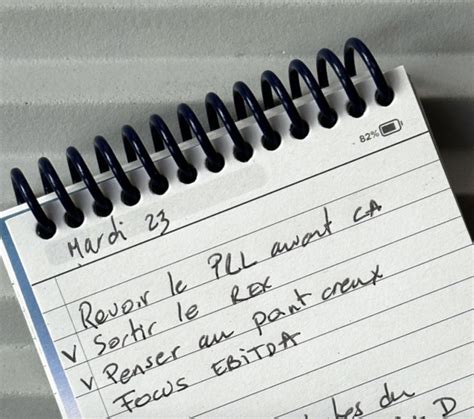 82%
Mardi 23
Revoir le PRL avant CA
v Sortir le REX
v Penser au point creux
Focus EBITDA
du
D